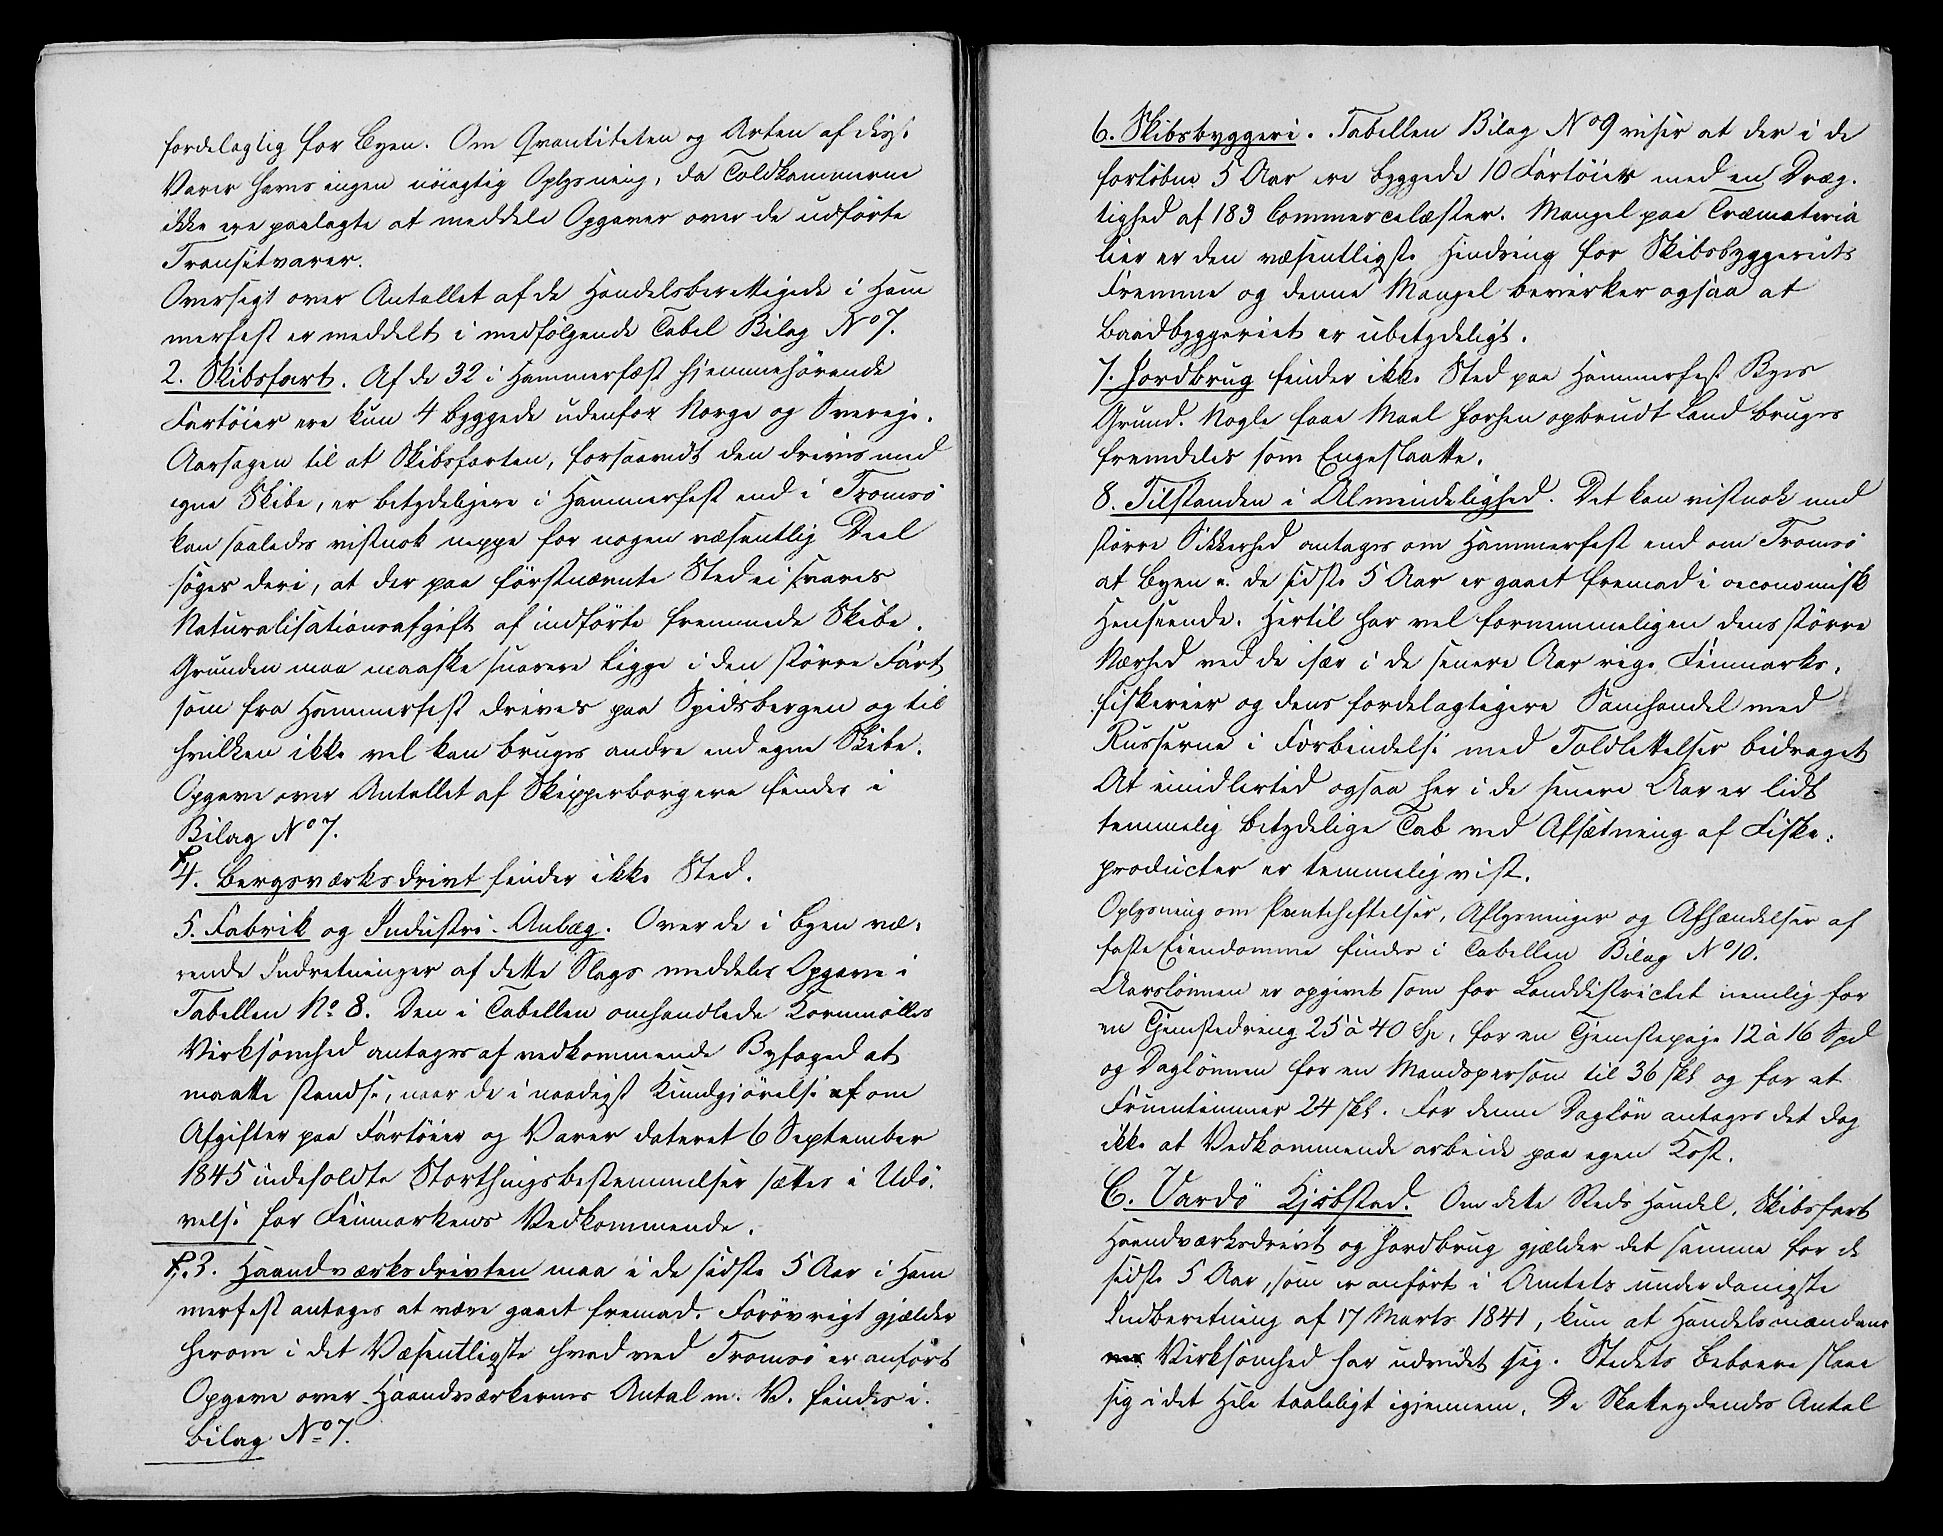 fordelagtig for Byen. Om Qvantiteten og Arten af disse
Varer haves ingen nöiagtig Oplysning, da Toldkamrene
ikke ere paalagte at meddele Opgaver over de udförte
Transitvarer.
Oversigt over Antallet af de Handelsberettigede i Ham
merfest er meddelt i medfölgende Tabel Bilag No 7.
2. Skibsfart. Af de 32 i Hammerfest hjemmehörende
Fartöier ere kun 4 byggede udenfor Norge og Sverige.
Aarsagen til at Skibsfarten, forsaavidt den drives med
egne Skibe, er betydeligere i Hammerfest end i Tromsö
kan saaledes vistnok neppe for nogen væsentlig Deel
söges deri, at der paa förstnævnte Sted ei svares
Naturalisationsafgift af indförte fremmede Skibe.
Grunden maa maaske snarere ligge i den större Fart
som fra Hammerfest drives paa Spidsbergen og til
hvilken ikke vel kan bruges andre end egne Skibe.
Opgave over Antallet af Skipperborgere findes i
Bilag No 7.
4. Bergsværksdrivt finder ikke Sted.
5. Fabrik og Industri-Anlæg. Over de i Byen væ-
rende Indretninger af dette Slags meddeles Opgave i
Tabellen No 8. Den i Tabellen omhandlede Kornmölles
Virksomhed antages af vedkommende Byfoged at
maatte standse, naar de i naadigst Kundgjörelse af om
Afgifter paa Fartöier og Varer dateret 6 September
1845 indeholdte Storthingsbestemmelser sættes i Udö-
velse for Finmarkens Vedkommende.
3. Haandværksdrivten maa i de sidste 5 Aar i Ham
merfest antages at være gaaet fremad. Forövrigt gjælder
herom i det Væsentligste hvad ved Tromsö er anfört
Opgave over Haandværkernes Antal m. V. findes i
Bilag No 7.
6. Skibsbyggeri. Tabellen Bilag No 9 viser at der i de
forlöbne 5 Aar ere byggede 10 Fartöier med en Dræg-
tighed af 183 Commercelæster. Mangel paa Træmateria
lier er den væsentligste Hindring for Skibsbyggeriets
Fremme og denne Mangel bevirker ogsaa at
Baadbyggeriet er ubetydeligt.
7. Jordbrug finder ikke Sted paa Hammerfest Byes
Grund. Nogle faae Maal forhen opbrudt Land bruges
fremdeles som Engeslaatte.
8. Tilstanden i Almindelighed. Det kan vistnok med
större Sikkerhed antages om Hammerfest end om Tromsö
at Byen i de sidste 5 Aar er gaaet fremad i oeconomisk
Henseende. Hertil har vel fornemmeligen dens större
Nærhed ved de især i de senere Aar rige Finmarks-
fiskerier og dens fordelagtigere Samhandel med
Russerne i Forbindelse med Toldlettelser bidraget
At imidlertid ogsaa her i de senere Aar er lidt
temmelig betydelige Tab ved Afsætning af Fiske-
producter er temmelig vist.
Oplysning om Pantehæftelser, Aflysninger og Afhændelser af
faste Eiendomme findes i Tabellen Bilag No 10.
Aarslönnen er opgivet som for Landdistrictet nemlig for
en Tjenstedreng 25 à 40 Sp, for en Tjenstepige 12 à 16 Spd
og Daglönnen for en Mandsperson til 36 skl og for et
Fruentimmer 24 skl. For denne Daglön antages det dog
ikke at Vedkommende arbeide paa egen Kost.
C. Vardö Kjöbstad. Om dette Steds Handel, Skibsfart
Haandværksdrivt og Jordbrug gjælder det samme for de
sidste 5 Aar, som er anfört i Amtets underdanigste
Indberetning af 17 Marts 1841, kun at Handelsmændenes
Virksomhed har udvidet sig. Stedets Beboere slaae
sig i det Hele taaleligt igjennem. De Skatteydendes Antal